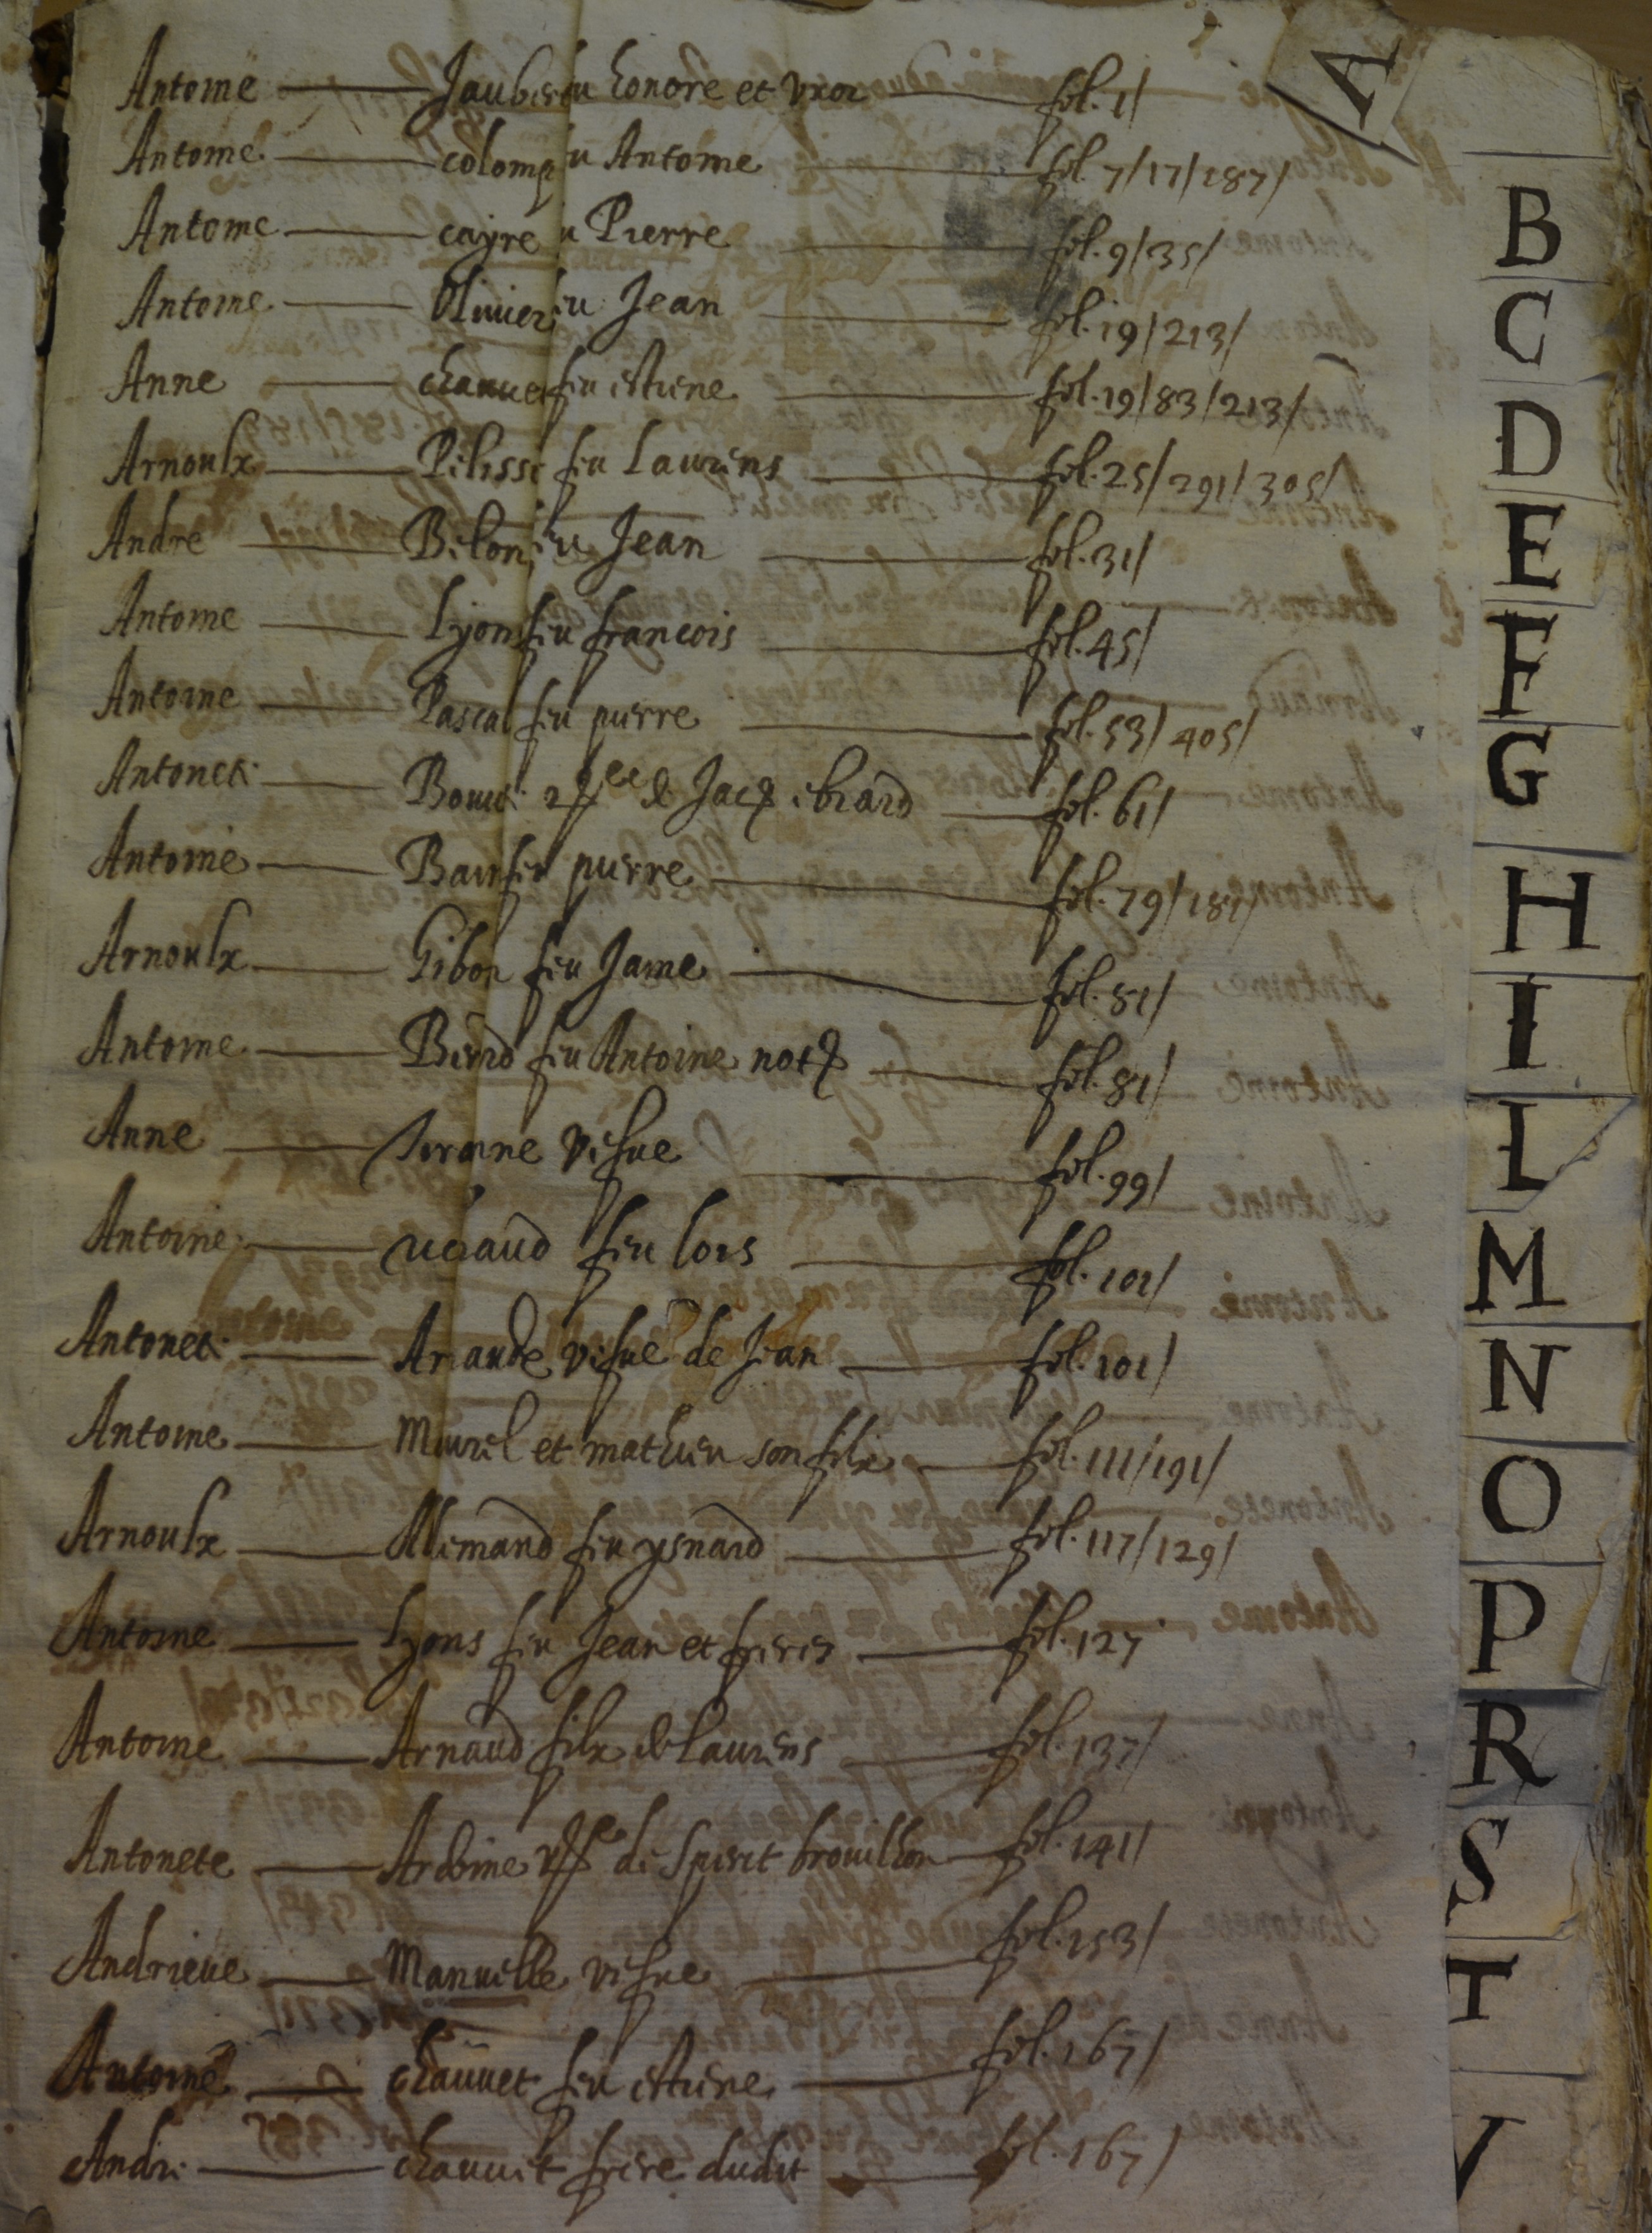 A
Antoine Jaubert feu honore et uxor fol. 1/
Antoine colomp feu Antoine fol. 7/17/187/
Antoine cayre feu Pierre fol. 9/35/
Antoine Olivier feu Jean fol. 19/213/
Anne chauvet feu estiene fol. 19/83/213/
Arnoulx Pelisse feu Laurens fol. 25/291/305/
Andre Belon feu Jean fol. 31/
Antoine Lyons feu francois fol. 45/
Antoine Pascal feu pierre fol. 53/405/
Antonete de Jacq fol. 61/
Antoine feu pierre fol. 79/
Arnoulx Gibor feu Jame fol. 81/
Antoine feu Antoine not fol. 81/
Anne vesue fol. 99/
Antoine feu lois fol. 101/
Antonete Ariaude vesue de Jean fol. 101/
Antoine Mourel et mathieu son filx fol. 111/191/
Arnoulx Allemand feu ysnard fol. 117/129/
Antoine Lyons feu Jean et freres fol. 127
Antoine Arnaud filx de Laurens fol. 137/
Antonete Ardoine de Spirit brouilhon fol. 141/
Andrieue Manuelle vesue fol. 153/
Antoine chauvet feu estiene fol. 167/
Andre chauvet frere dudit fol. 167/
B
C
D
E
F
G
H
I
L
M
N
O
P
R
S
T
V